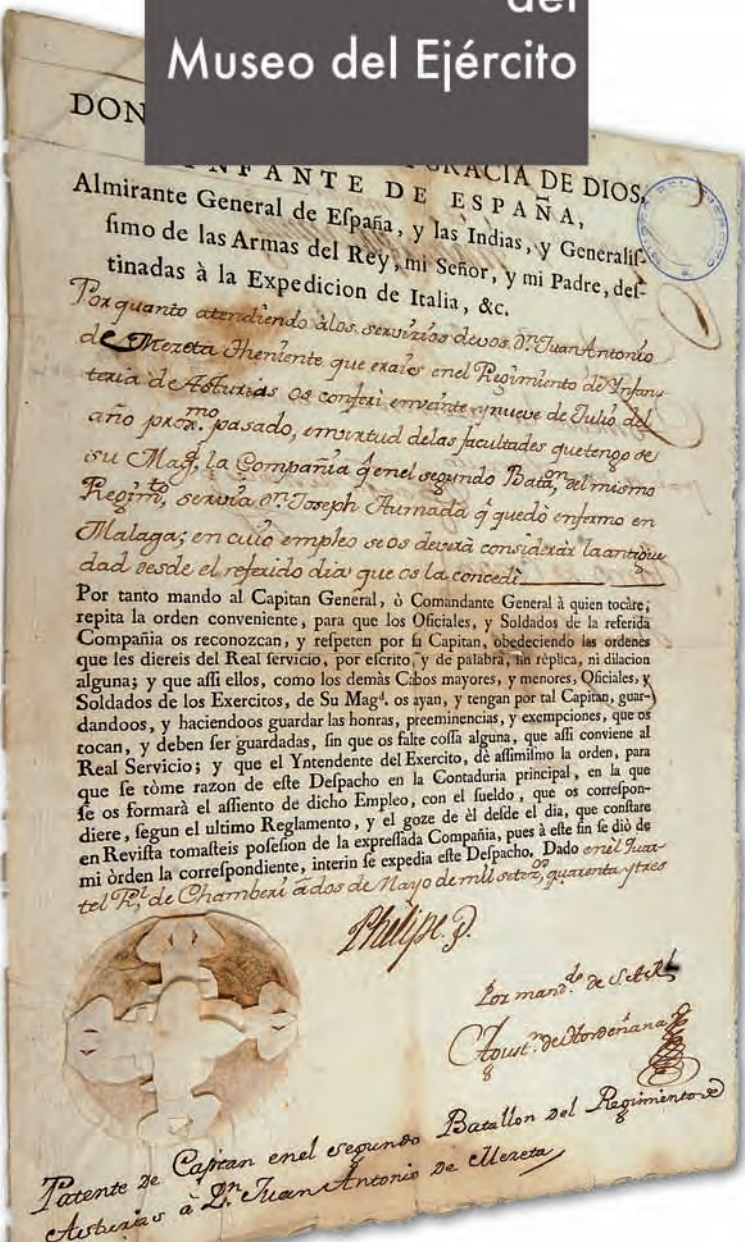 del
Museo del Ejército
DON
GRACIA DE DIOS,
INFANTE DE ESPAÑA,
Almirante General de Eſpaña, y las Indias, y Generaliſ-
ſimo de las Armas del Rey, mi Señor, y mi Padre, deſ-
tinadas à la Expedicion de Italia, &c.
Por quanto atendiendo àlos servizios devos Dn. Juan Antonio
de Mezeta Theniente que eraìs enel Regimiento de Ynfan
teria de Asturias os conferì enveinte ynueve de Julio del
año proxmo. pasado, envirtud delas facultades quetengo de
su Magd. la Compañia q̃ enel segundo Batan. del mismo
Regimto. servia Dn. Joseph Aumada q̃ quedò enfermo en
Malaga; en cuio empleo seos deverà considerar laantigue
dad desde el referido dia que os la concedì
Por tanto mando al Capitan General, ò Comandante General à quien tocàre;
repita la orden conveniente, para que los Oficiales, y Soldados de la referida
Compañia os reconozcan, y reſpeten por ſu Capitan, obedeciendo las ordenes
que les diereis del Real ſervicio, por eſcrito, y de palabra, ſin rèplica, ni dilacion
alguna; y que aſſi ellos, como los demàs Cabos mayores, y menores, Oficiales, y
Soldados de los Exercitos, de Su Magd. os ayan, y tengan por tal Capitan, guar-
dandoos, y haciendoos guardar las honras, preeminencias, y exempciones, que os
tocan, y deben ſer guardadas, ſin que os falte coſſa alguna, que aſſi conviene al
Real Servicio; y que el Yntendente del Exercito, dè aſſimiſmo la orden, para
que ſe tòme razon de eſte Deſpacho en la Contaduria principal, en la que
ſe os formarà el aſſiento de dicho Empleo, con el ſueldo, que os correſpon-
diere, ſegun el ultimo Reglamento, y el goze de èl deſde el dia, que conſtare
en Reviſta tomaſteis poſeſion de la expreſſada Compañia, pues à eſte fin ſe diò de
mi òrden la correſpondiente, interin ſe expedia eſte Deſpacho. Dado enel Quar-
tel Rl. de Chamberì à dos de Mayo de mil setezos. quarenta ytres
Phelipe
Por mando. de S. A. Rl.
Agustn. de Hordeñana
Patente de Capitan enel segundo Batallon del Regimiento de
Asturias à Dn. Juan Antonio de Mezeta